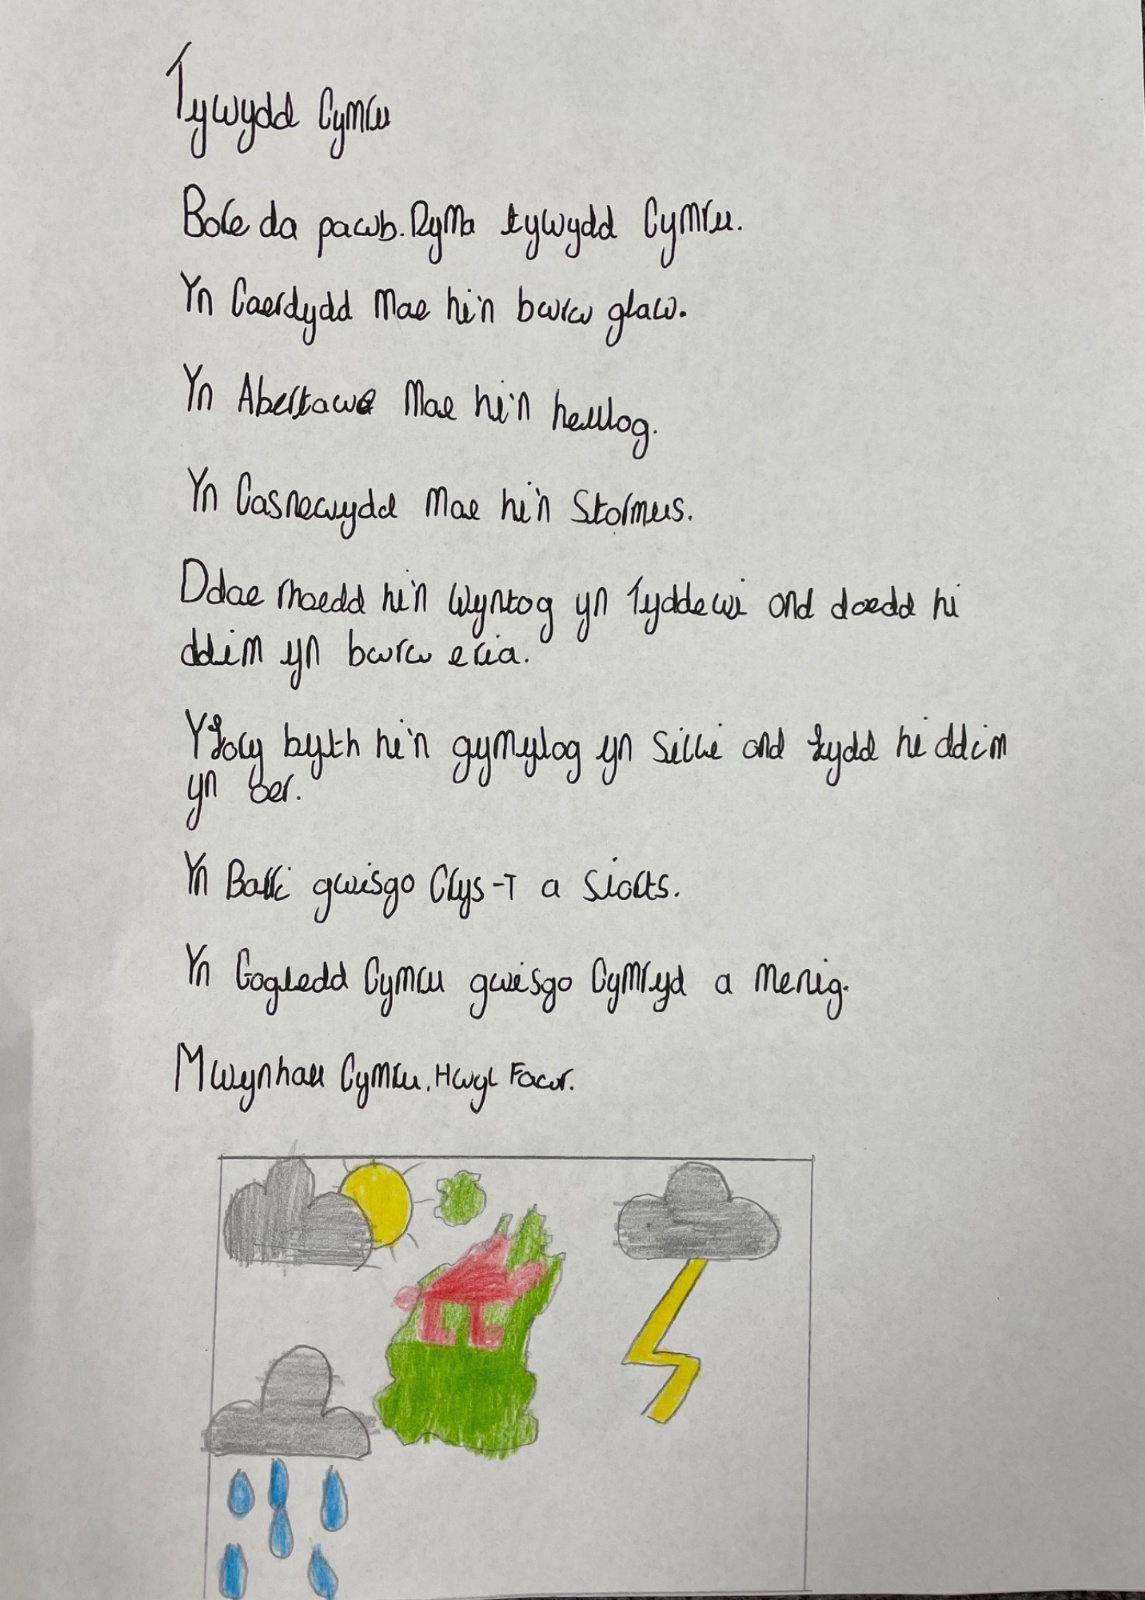 Tywydd Cymru
Bore da pawb. Dyma tywydd Cymru.
Yn Caerdydd mae hi'n bwrw glaw.
Yn Abertawe mae hi'n heulog.
Yn Casnewydd mae hi'n stormus.
Ddoe rhoedd hi'n wyntog yn Tyddewi ond doedd hi
ddim yn bwrw eria.
Yfory byth hi'n gymylog yn Silli ond fydd hi ddim
yn oer.
Yn Barri gwisgo Crys-T a siorts.
Yn Gogledd Cymru gwisgo Cymryd a menig.
Mwynhau Cymru. Hwyl Fawr.